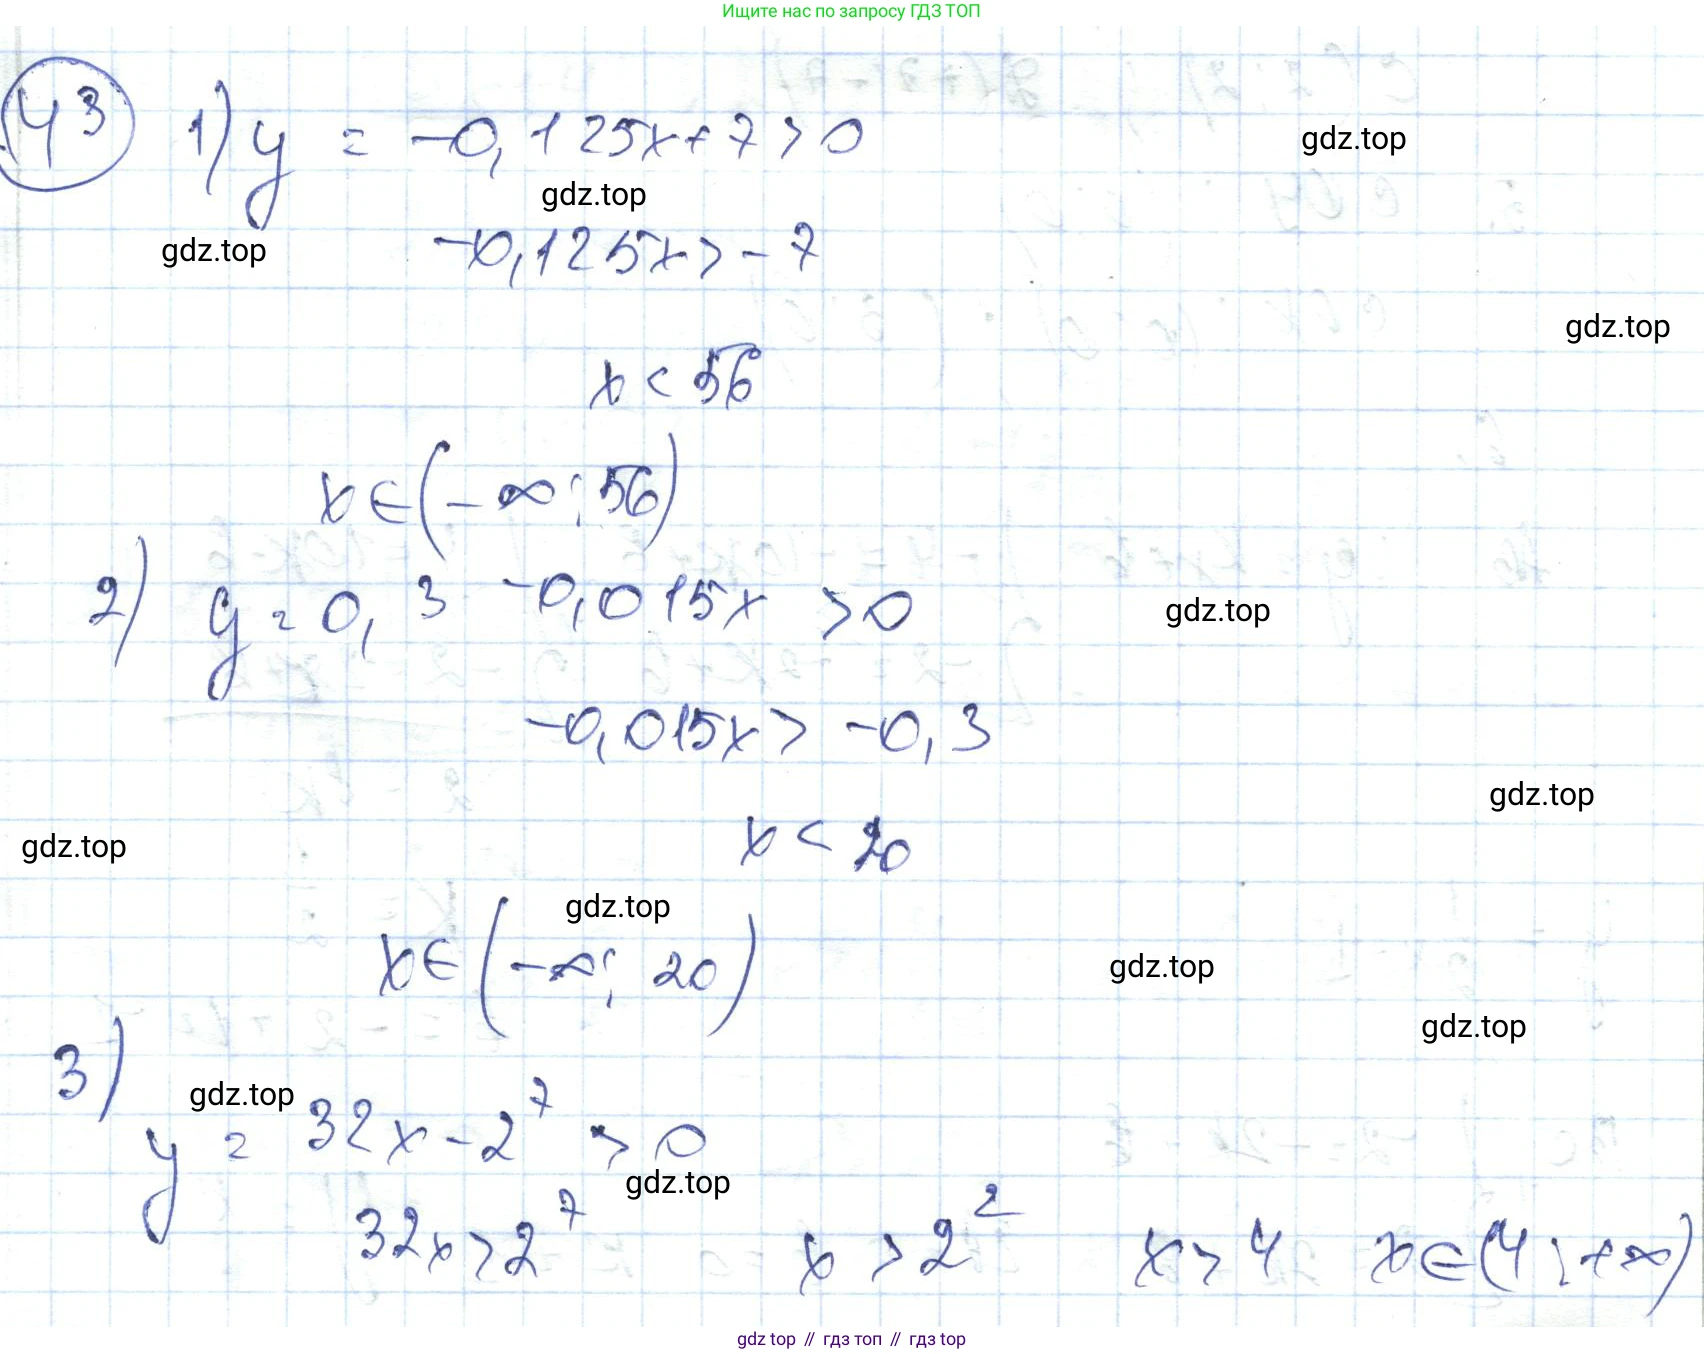 Ищите нас по запросу ГДЗ ТОП
43 1) y = -0,125x + 7 > 0
gdz.top
gdz.top
gdz.top
-0,125x > -7
gdz.top
x < 56
x ∈ (-∞; 56)
2) y = 0,3 -0,015x > 0
gdz.top
-0,015x > -0,3
gdz.top
x < 20
gdz.top
gdz.top
x ∈ (-∞; 20)
gdz.top
gdz.top
3) y = 32x - 2^7 > 0
gdz.top
gdz.top
32x > 2^7 x > 2^2 x > 4 x ∈ (4; +∞)
gdz top // гдз топ // гдз top